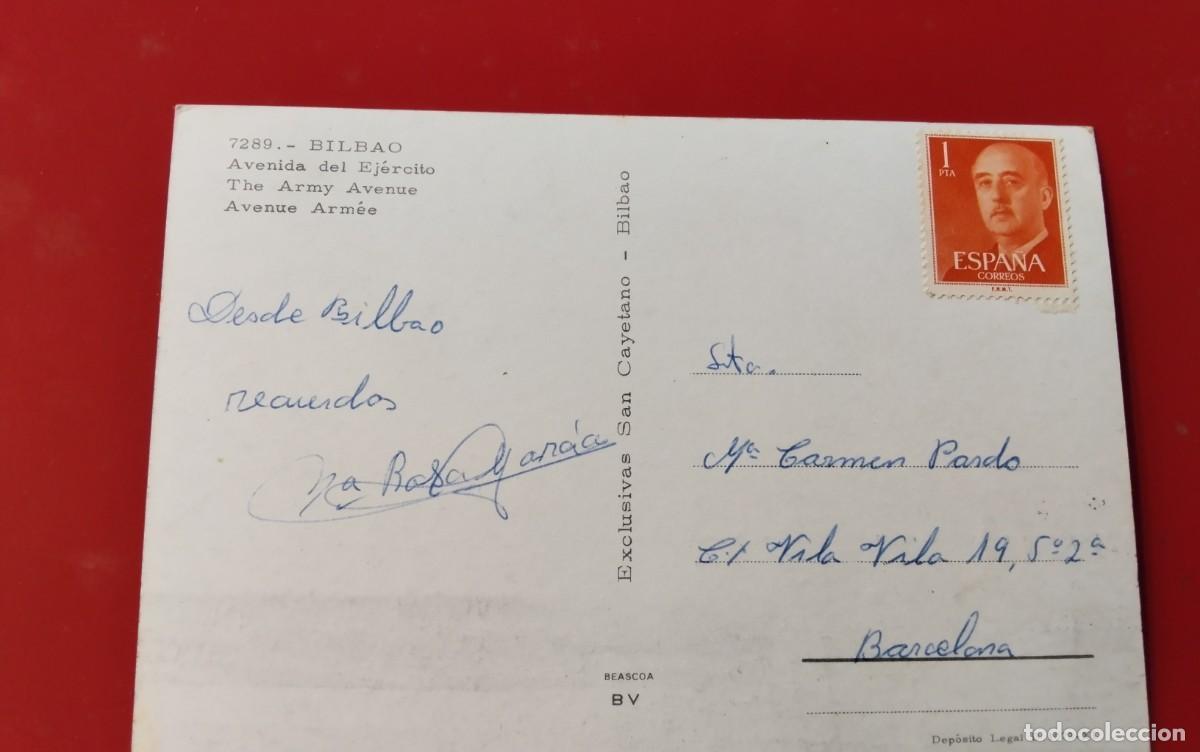 7289.- BILBAO
Avenida del Ejército
The Army Avenue
Avenue Armée
Desde Bilbao
recuerdos
Mª Rosa García
Exclusivas San Cayetano - Bilbao
BEASCOA
BV
1
PTA
ESPAÑA
CORREOS
F.N.M.T.
Srta.
Mª Carmen Pardo
C/ Vila Vila 19, 5º 2ª
Barcelona
Depósito Legal
todocoleccion